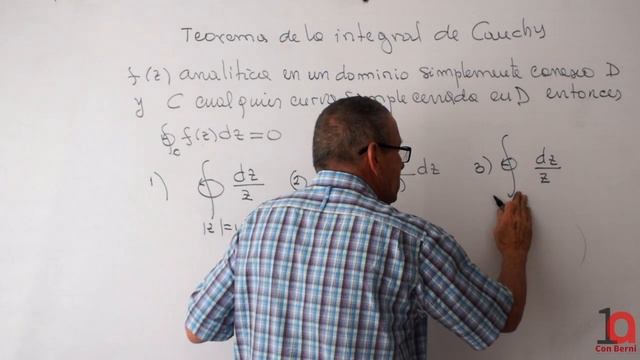 Teorema de la integral de Cauchy
f(z) analítica en un dominio simplemente conexo D
y C cualquier curva simple cerrada en D entonces
∮_C f(z)dz = 0
1) ∮ dz/z (2) dz 3) ∮ dz/z
|z|=
1a
Con Berni